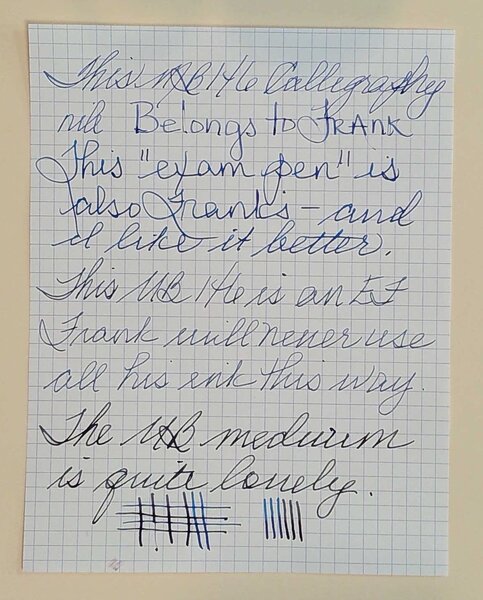 This MB 146 Calligraphy
nib Belongs to FRANK
This "exam pen" is
also Frank's - and
I like it better.
This MB 146 is an EF
Frank will never use
all his ink this way.
The MB medium
is quite lovely.